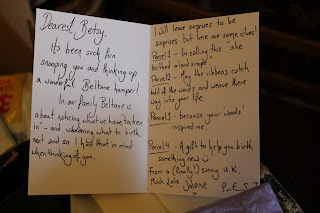 Dearest Betsy,
It's been such fun
snooping you and thinking up
a wonderful Beltane hamper!
In our family Beltane is
about noticing what we have taken
in - and wondering what to birth
next and so I held that in mind
when thinking of you.
I will leave surprises to be
surprises but here are some clues!
Parcel 1 - In calling this "she
birthed a landscape"
Parcel 2 - May the ribbons catch
hold of the words and weave there
way into your life.
Parcel 3 - because your words
inspired me.
Parcel 4 - A gift to help you birth
something new ☺
From a (finally!) sunny U.K.
Much Love Jolene
P.E.S.T